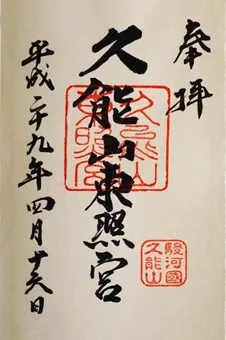 奉拝
久能山東照宮
久能山東照宮
駿河國
久能山
平成二十九年四月十六日